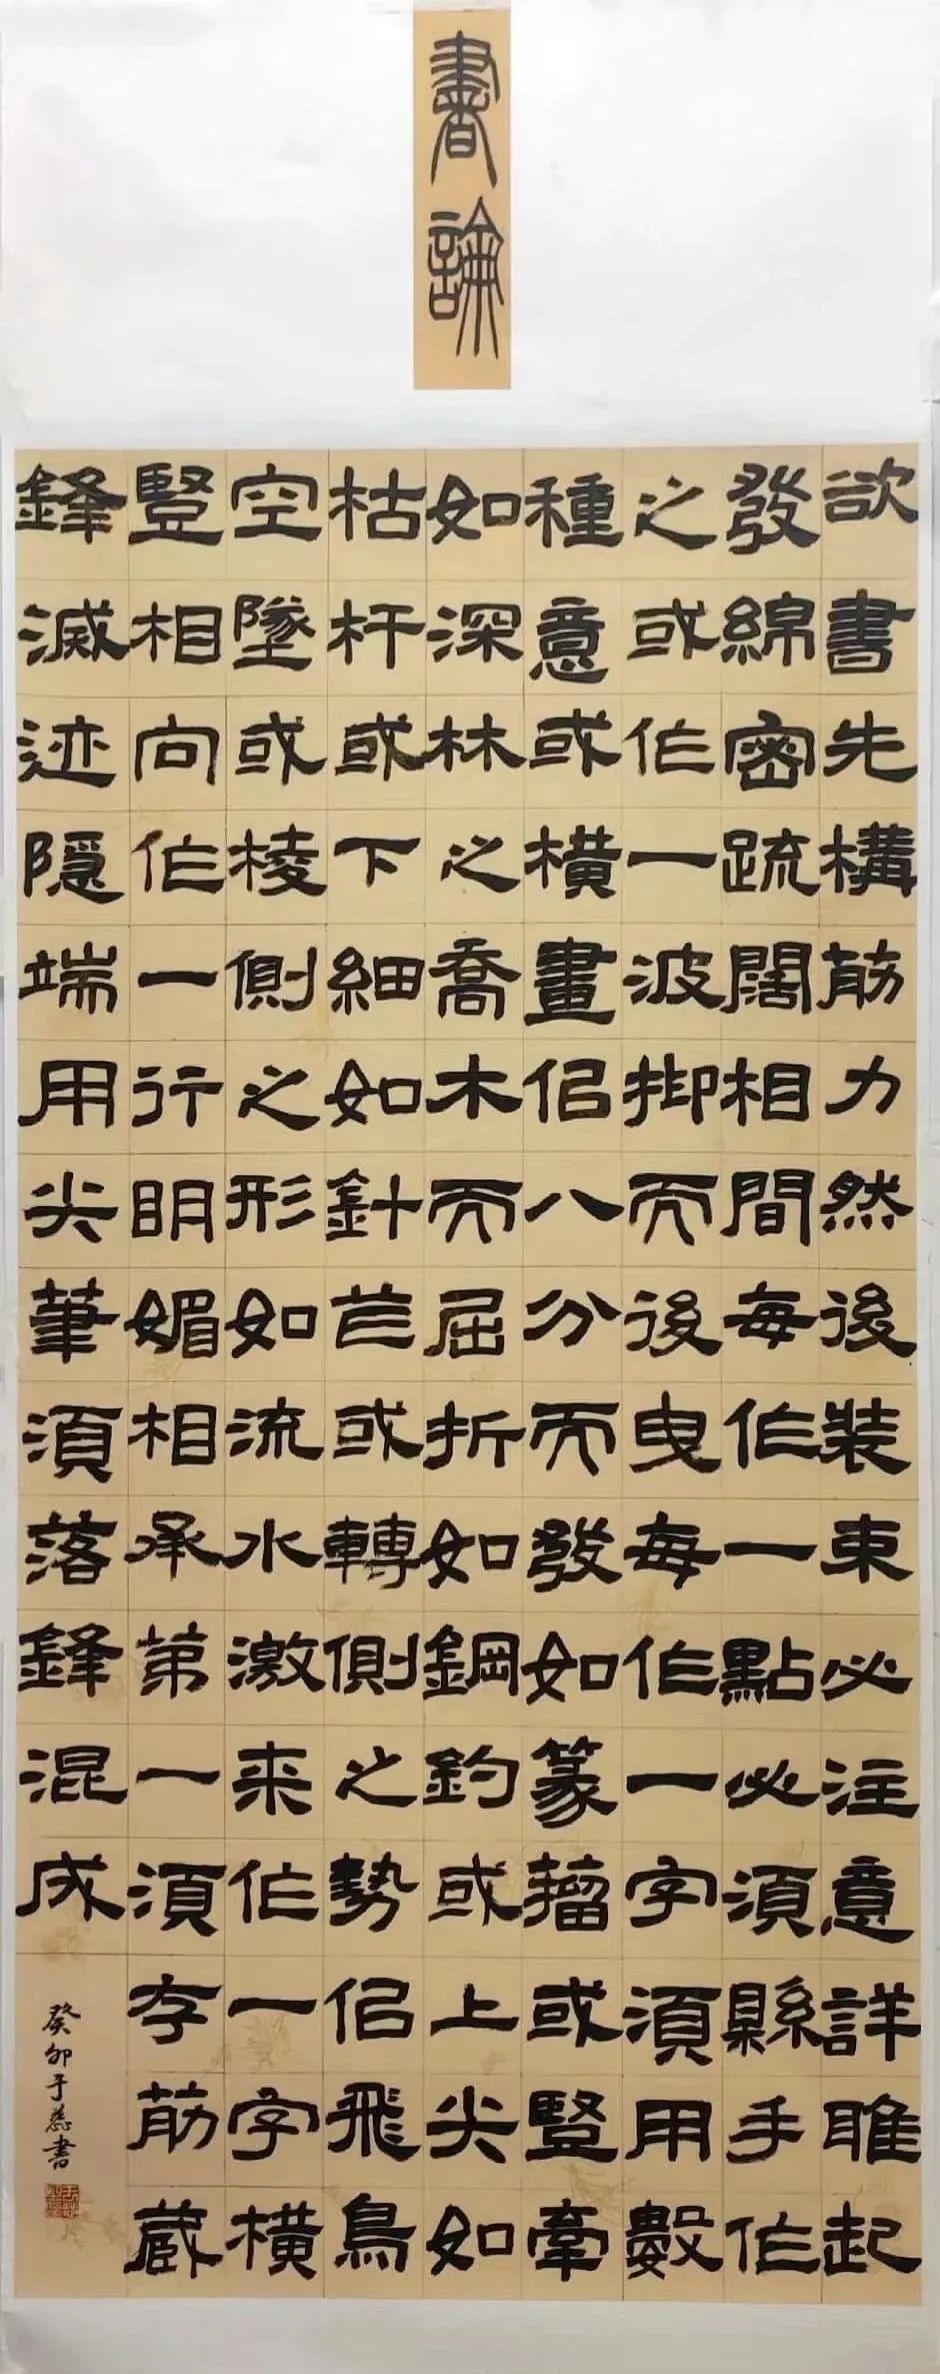 書論
欲書先構筋力然後装束必注意詳雎起
發綿密疏闊相間每作一點必須縣手作
之或作一波抑而後曳每作一字須用數
種意或橫畫佀八分而發如篆籀或豎牽
如深林之喬木而屈折如鋼鈎或上尖如
枯杆或下細如針芒或轉側之勢佀飛鳥
空墜或棱側之形如流水激来作一字橫
豎相向作一行明媚相承第一須存筋藏
鋒滅迹隱端用尖筆須落鋒混成
癸卯于蕊書